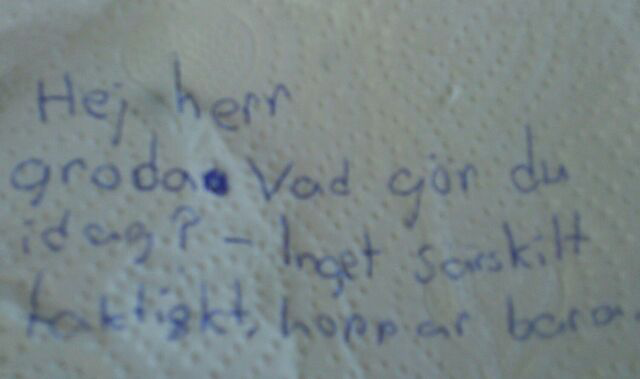 Hej herr
groda. Vad gör du
idag? - Inget särskilt
taktiskt, hoppar bara.